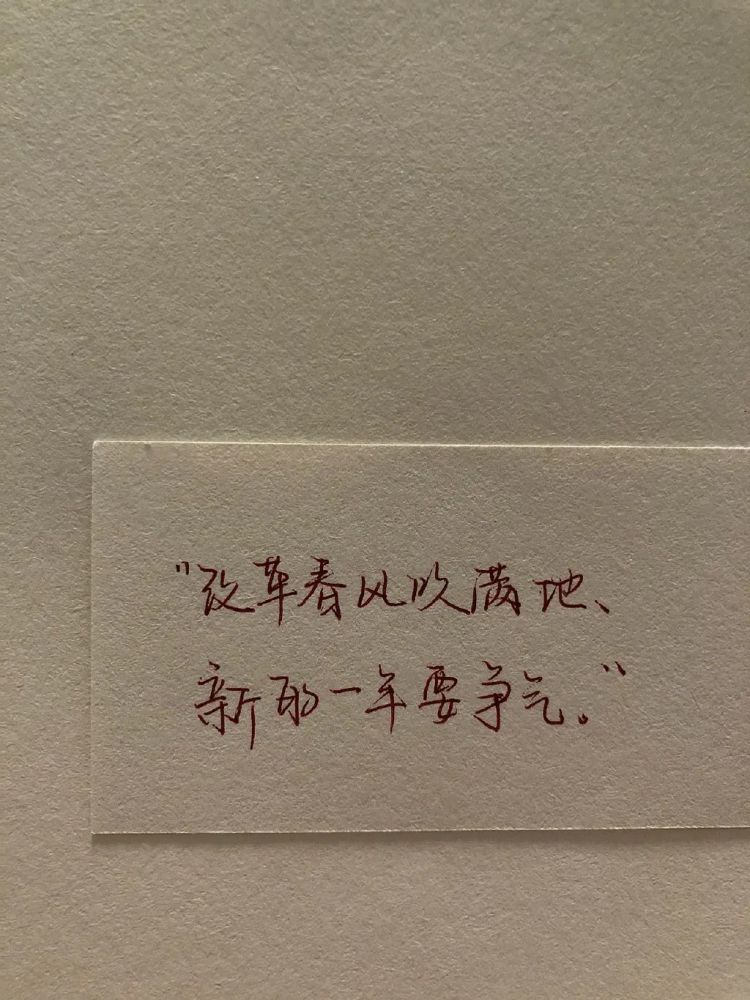 "改革春风吹满地、
新的一年要争气。"